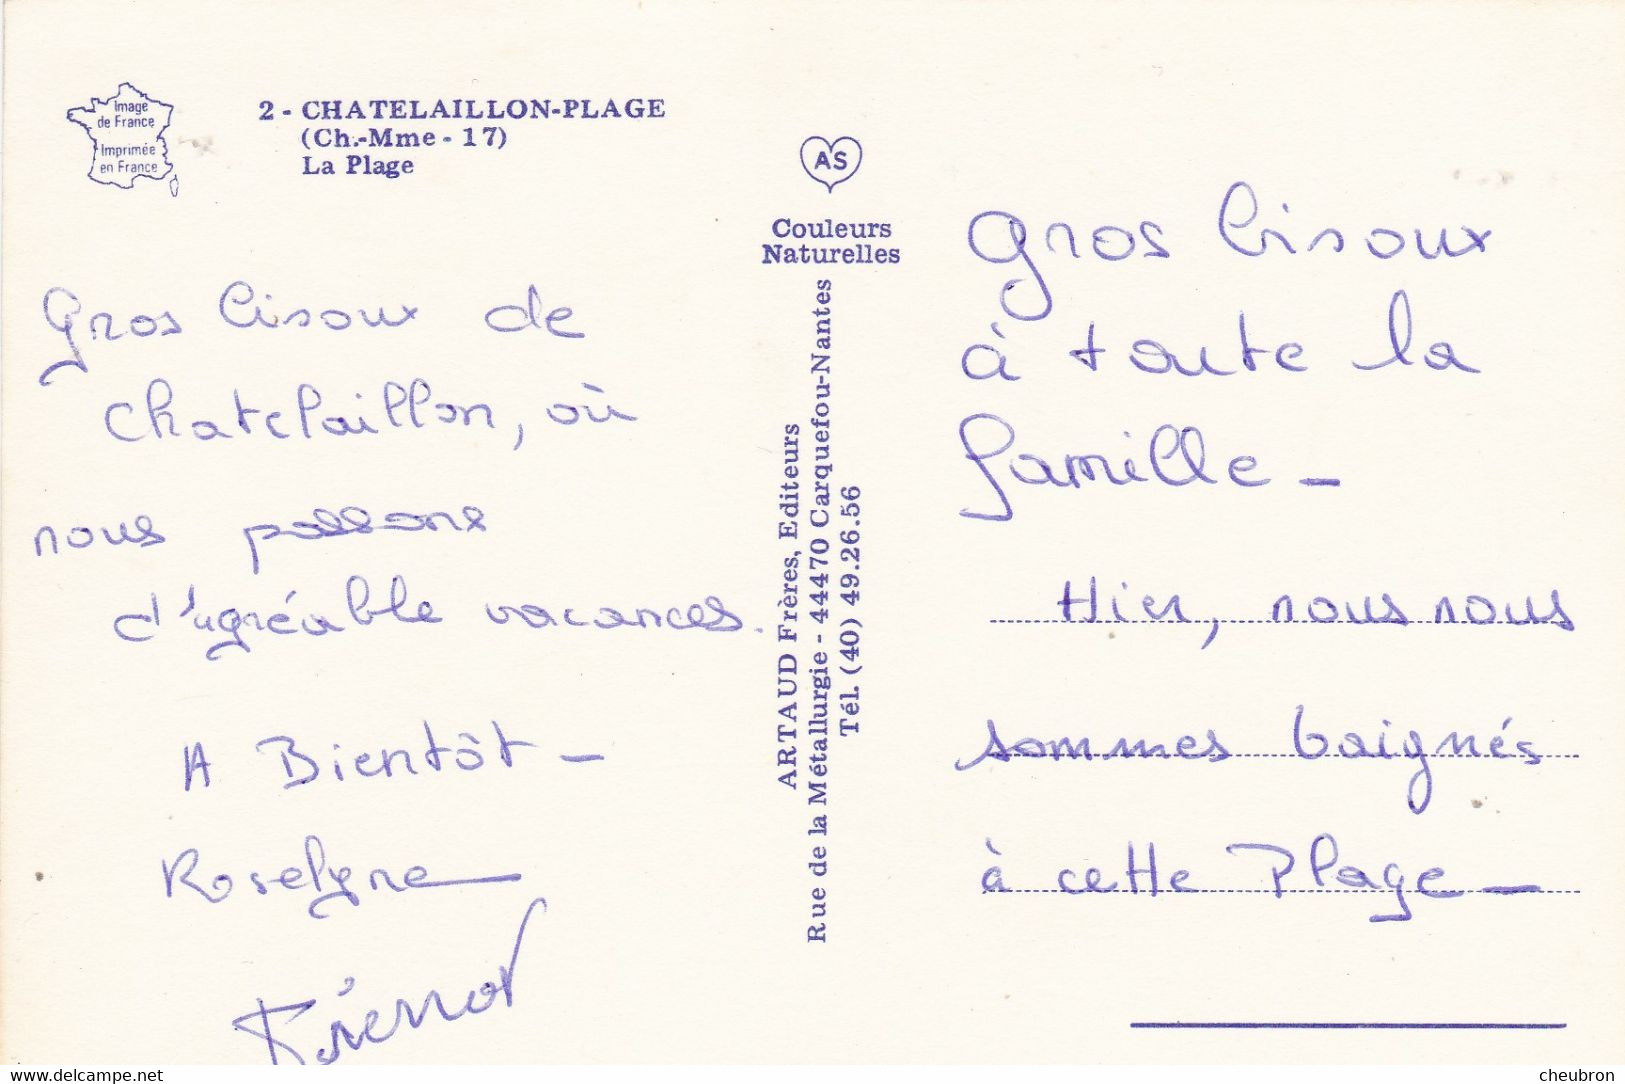 Image
de France
Imprimée
en France
2 - CHATELAILLON-PLAGE
(Ch.-Mme - 17)
La Plage
Gros bisoux de
Chatelaillon, où
nous passons
d'agréable vacances.
A Bientôt -
Roselyne
Pierrot
AS
Couleurs
Naturelles
ARTAUD Frères, Editeurs
Rue de la Métallurgie - 44470 Carquefou-Nantes
Tél. (40) 49.26.56
Gros bisoux
à toute la
famille -
Hier, nous nous
sommes baignés
à cette Plage -
www.delcampe.net
cheubron